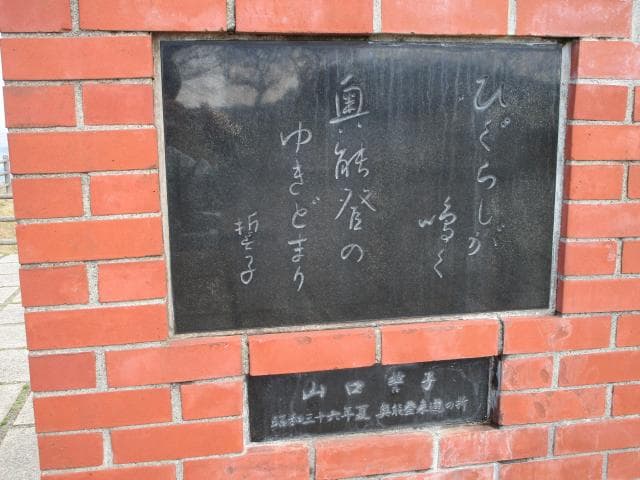 ひぐらしが
鳴く
奥能登の
ゆきどまり
誓子
山口誓子
昭和三十六年夏 奥能登来遊の折